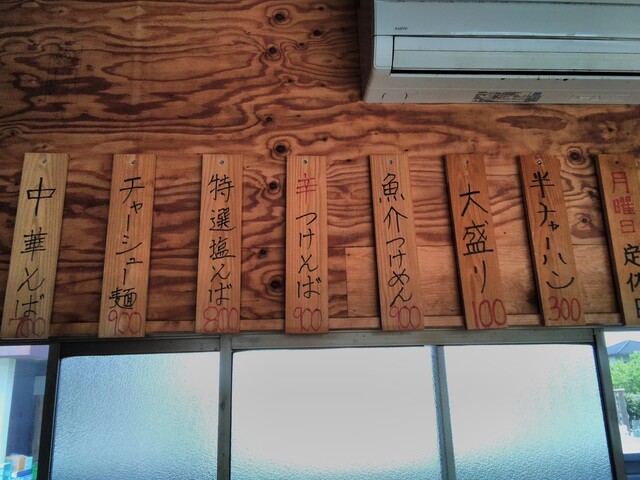 中華そば
700
チャーシュー麺
900
特選塩そば
800
辛つけそば
900
魚介つけめん
900
大盛り
100
半チャーハン
300
月曜日
定休日